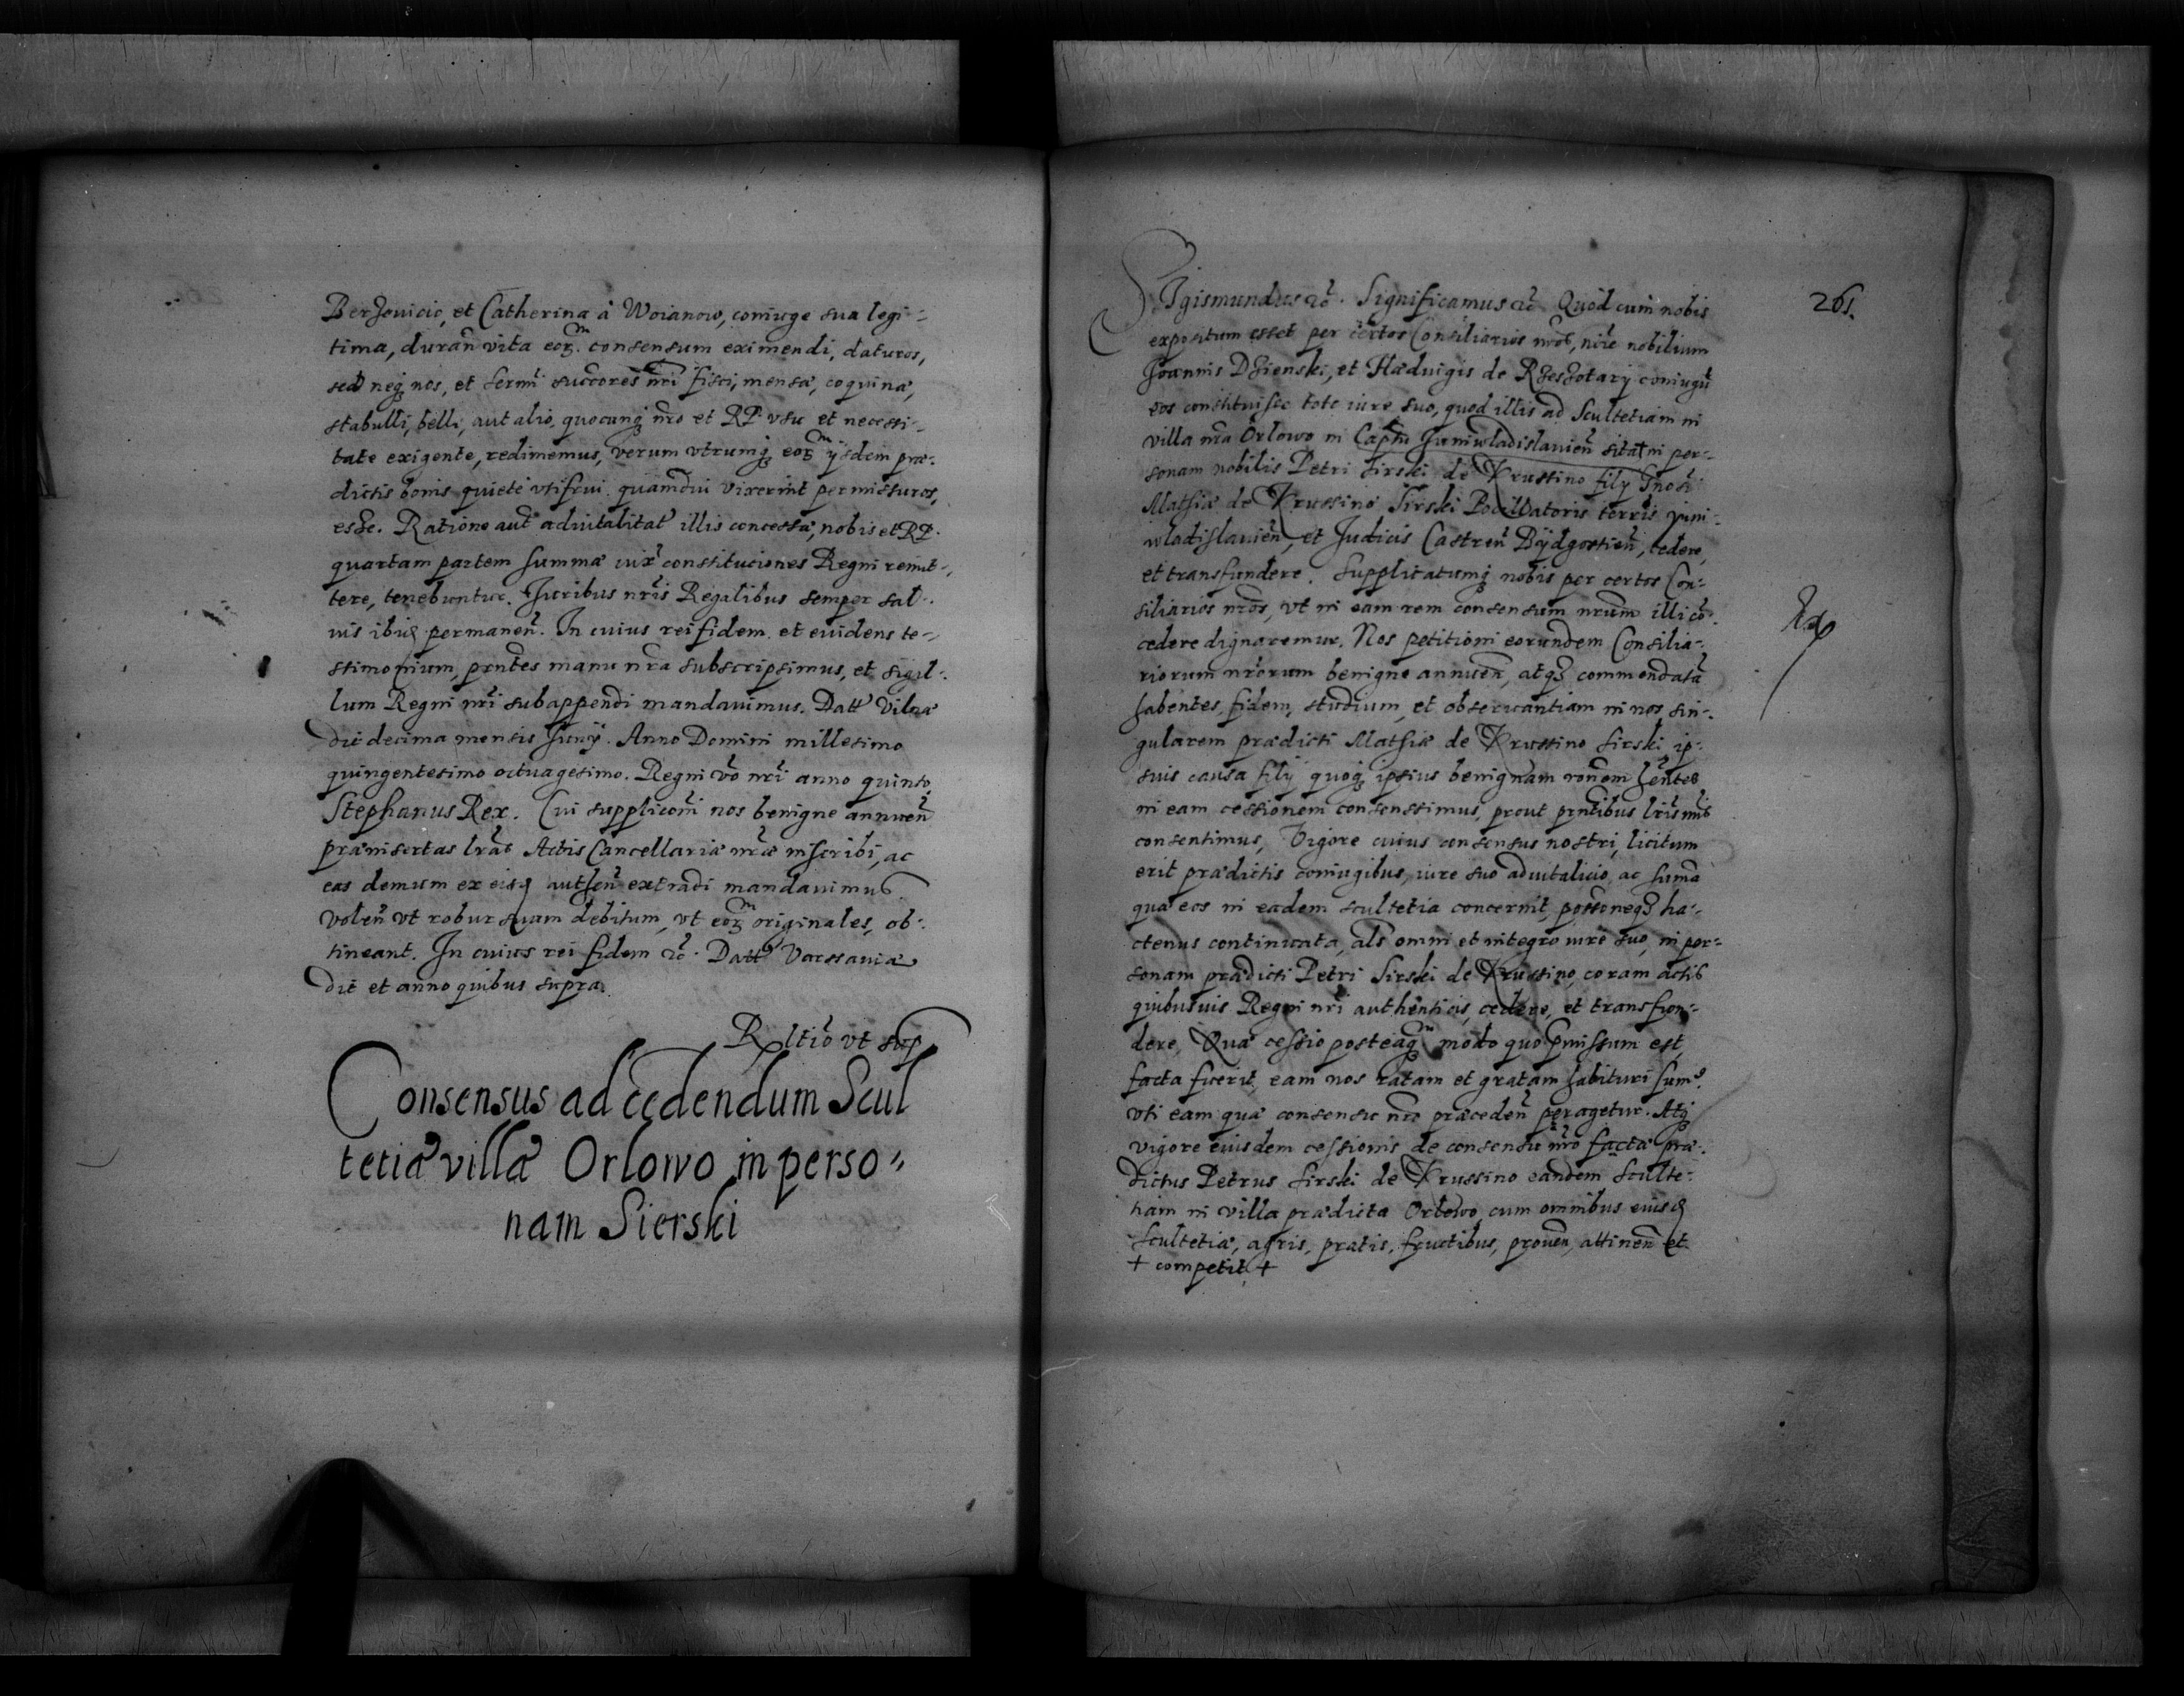 Berzevicio, et Catherina à Woianow, coniuge sua legi-
tima, durañ vita eorz. consensum eximendi, daturos,
sed neq nos, et sermi succores nri fisci, mensæ, coquinæ,
stabulli, belli, aut alio, quocunq nro et RP. vsu et necessi-
tate exigente, redimemus, verum vtrumq eorz ijsdem præ-
dictis bonis quiete vtifrui quamdiu vixerint permissuros,
esse. Ratione aut aduitalitat illis concessæ, nobis et RP.
quartam partem summæ iux constituciones Regni remit-
tere, tenebuntur. Iuribus nris Regalibus semper sal-
uis ibiq permaneñ. In cuius rei fidem et euidens te-
stimonium, prntes manu nra subscripsimus, et sigil-
lum Regni nri subappendi mandauimus. Datt Vilnæ
die decima mensis Iunij. Anno Domini millesimo
quingentesimo octuagesimo. Regni vo nri anno quinto.
Stephanus Rex. Cui supplicõni nos benigne annueñ
præinsertas lras Actis Cancellariæ nræ inscribi, ac
eas demum ex eisq authen extradi mandauimus
voleñ vt robur suam debitum, vt eorz originales, ob-
tineant. In cuius rei fidem etc. Datt Varssauiæ
die et anno quibus supra.
Rltio vt sup
Consensus ad cedendum Scul
tetiæ villæ Orlowo in perso-
nam Sierski
261.
Sigismundus etc. Significamus etc. Quod cum nobis
expositum esset per certos Consiliarios nros, nõie nobilium
Joannis Dzienski, et Hæduigis de Rzeszotarÿ coniugũ
eos constituisse toto iure suo, quod illis ad Scultetiam in
villa nra Orlowo in Captu Juniwladislauieñ sita + in per-
sonam nobilis Petri Sirski de Krussino filÿ Gnosi
Mathiæ de Krussino Sirski Pocillatoris terris Yuni-
wladislauieñ, et Judicis Castreñ Bÿdgostieñ, cedere,
et transfundere. Supplicatumq nobis per certos Con-
siliarios nros, vt in eam rem consensum nrum illi cõ-
cedere dignaremur. Nos petitioni eorundem Consilia-
riorum nrorum benigne annueñ, atq commendatã
habentes fidem, studium, et obseruantiam in nos sin-
gularem prædicti Mathiæ de Krussino Sirski, ip-
suis causa filÿ quoq ipsius benignam rõnem hẽntes
in eam cessionem consenssimus, prout prntibus lris nris
consentimus, Vigore cuius consensus nostri, licitum
erit prædictis coniugibus, iure suo aduitalicio, ac sumã
quæ eos in eadem scultetia concernit, possoneq ha-
ctenus continuata, als omni et integro iure suo, in per-
sonam prædicti Petri Sirski de Krussino, coram actis
quibusuis Regni nri authenticis, cedere, et transfun-
dere, Quæ cessio posteaq modo quo pmissum est,
facta fuerit, eam nos ratam et gratam habituri sum9
vti eam quæ consensu nro præcedeñ peragetur. Atq
vigore eiusdem cessionis de consensu nro factæ præ-
dictus Petrus Sirski de Krussino eandem Sculte-
tiam in villa prædicta Orlowo cum omnibus eiusq
Scultetiæ, agris, pratis, fructibus, proueñ, attineñ et
+ competit +